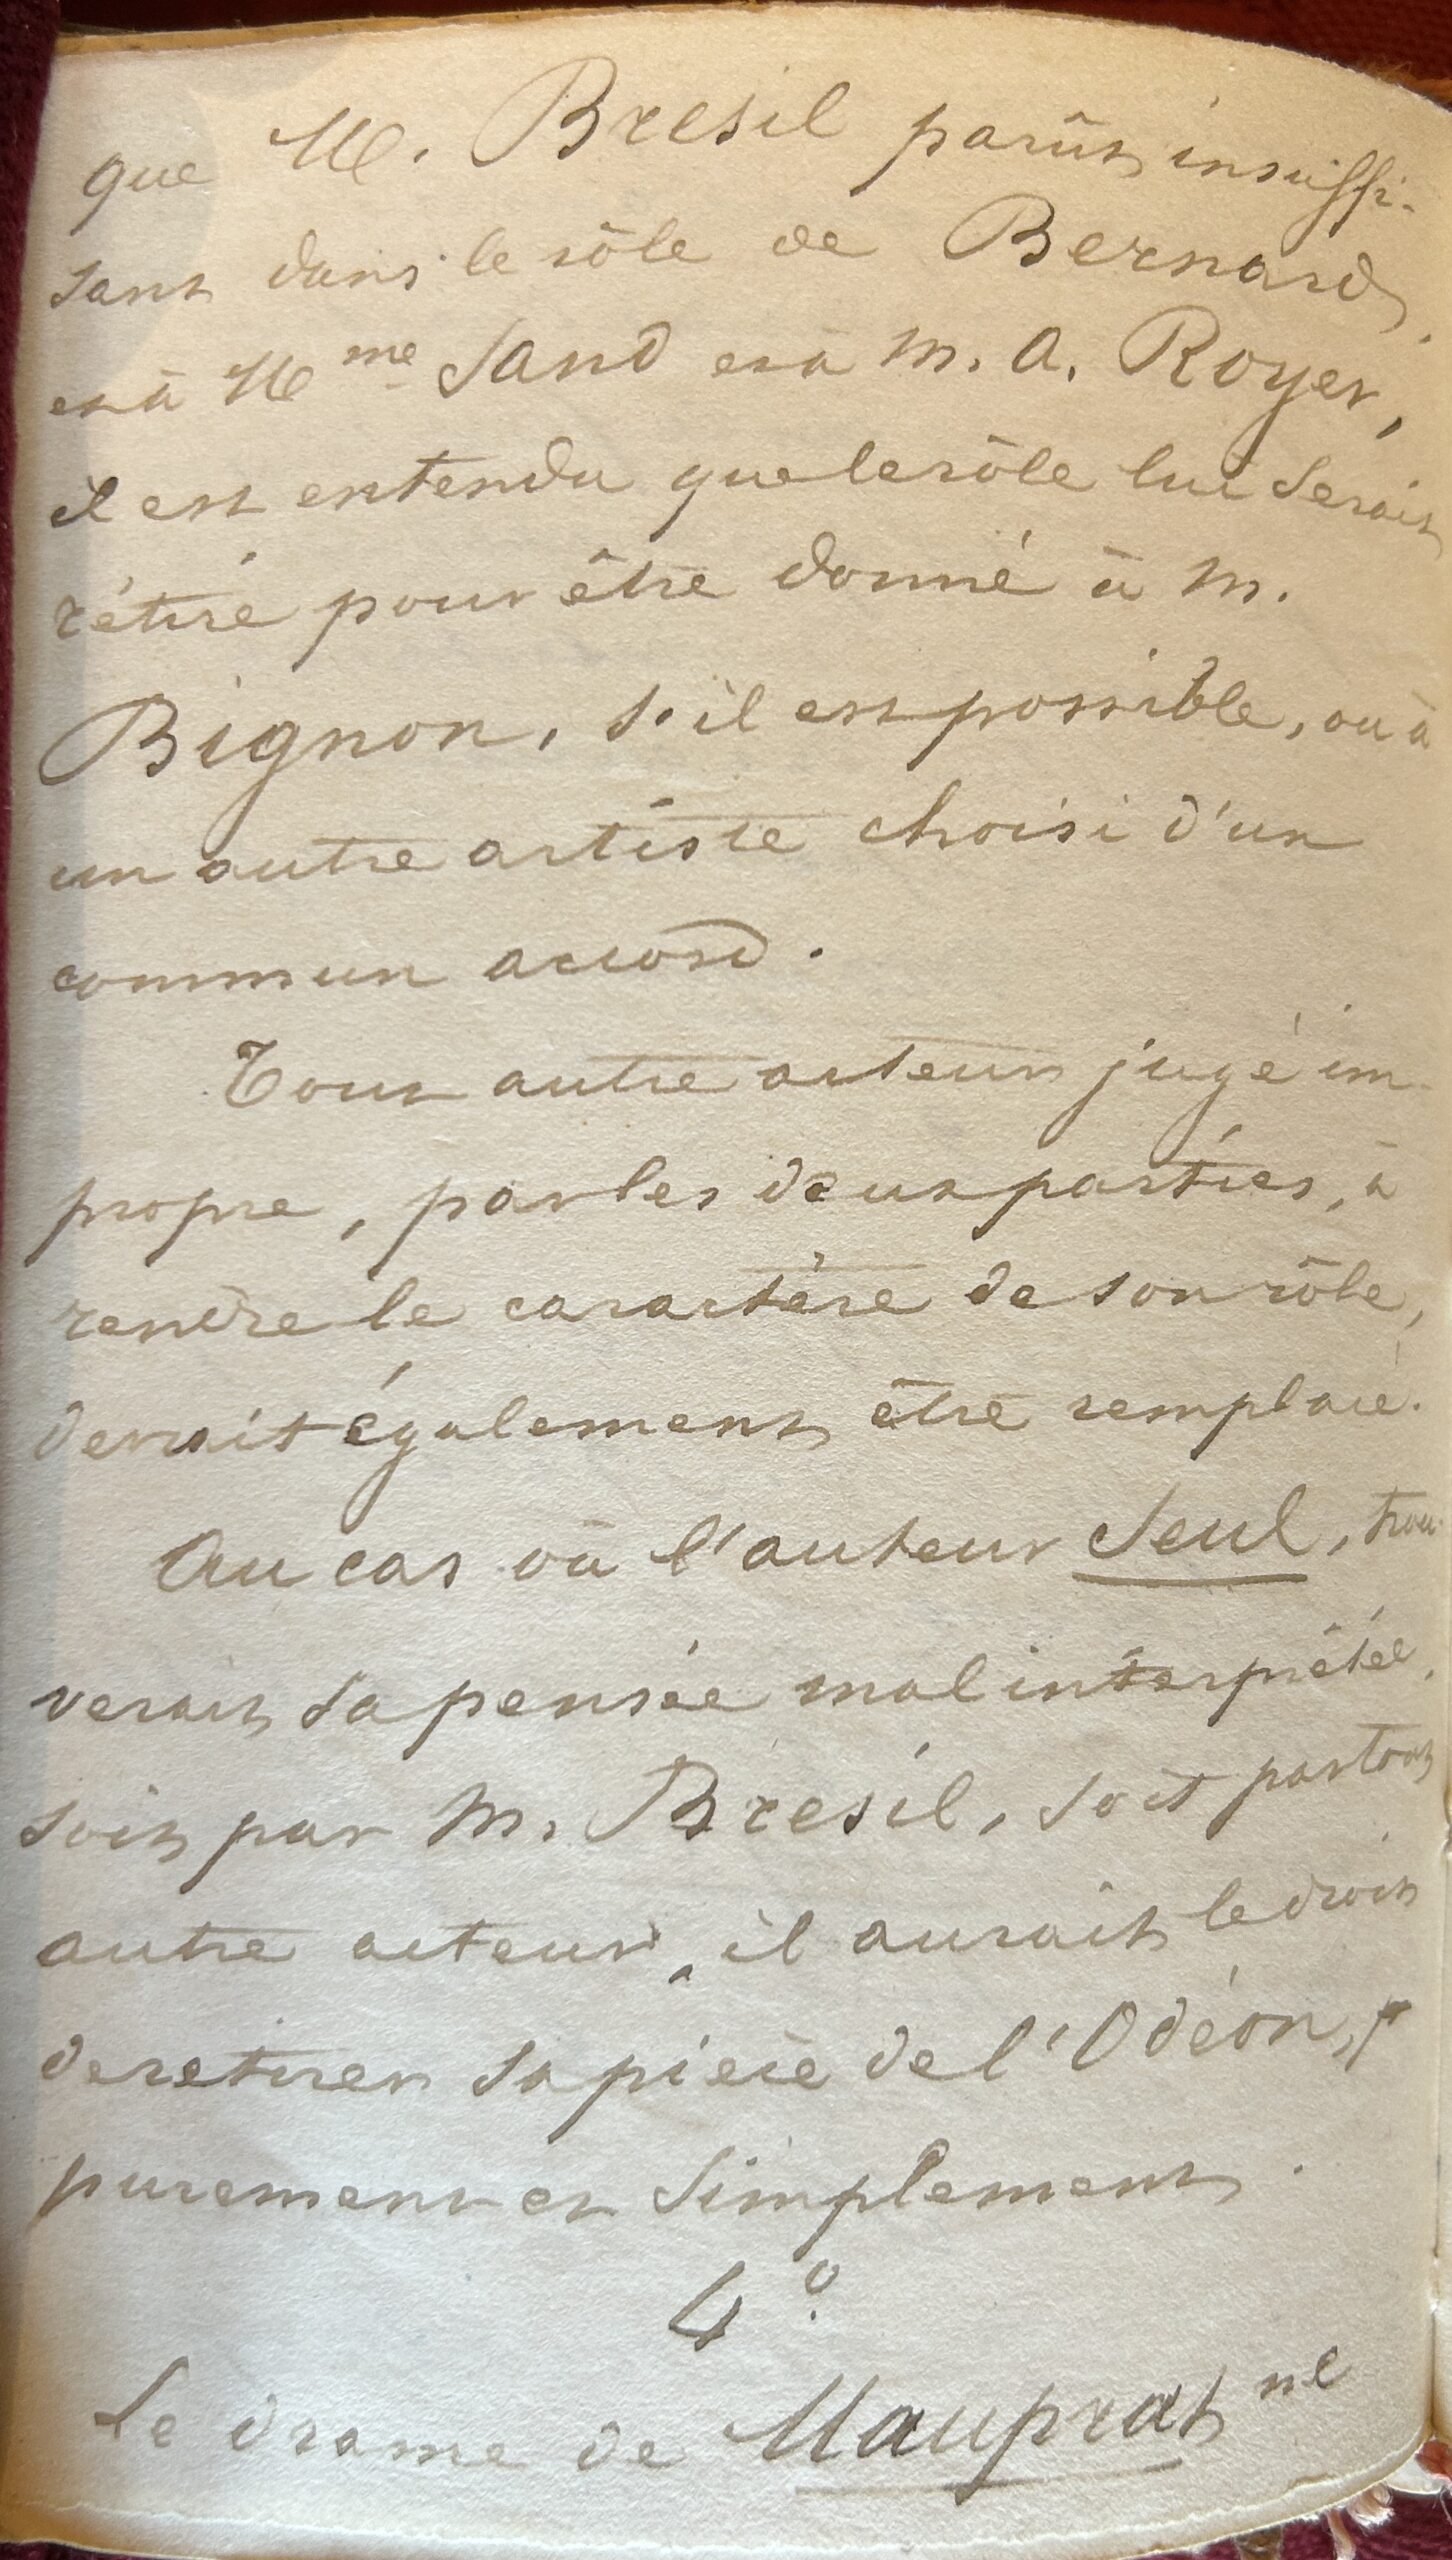 que M. Bresil parût insuffi-
sant dans le rôle de Bernard,
et à Mme Sand et à M. A. Royer,
il est entendu que le rôle lui serait
rétiré pour être donné à M.
Bignon, s'il est possible, ou à
un autre artiste choisi d'un
commun accord.
Tout autre acteur jugé im-
propre, par les deux parties, à
rendre le caractère de son rôle,
devrait également être remplacé.
Au cas où l'auteur seul, trou-
verait sa pensée mal interprétée,
soit par M. Brésil, soit par tout
autre acteur, il aurait le droit
de retirer sa pièce de l'Odéon,
purement et simplement.
4°.
Le drame de Mauprat ne